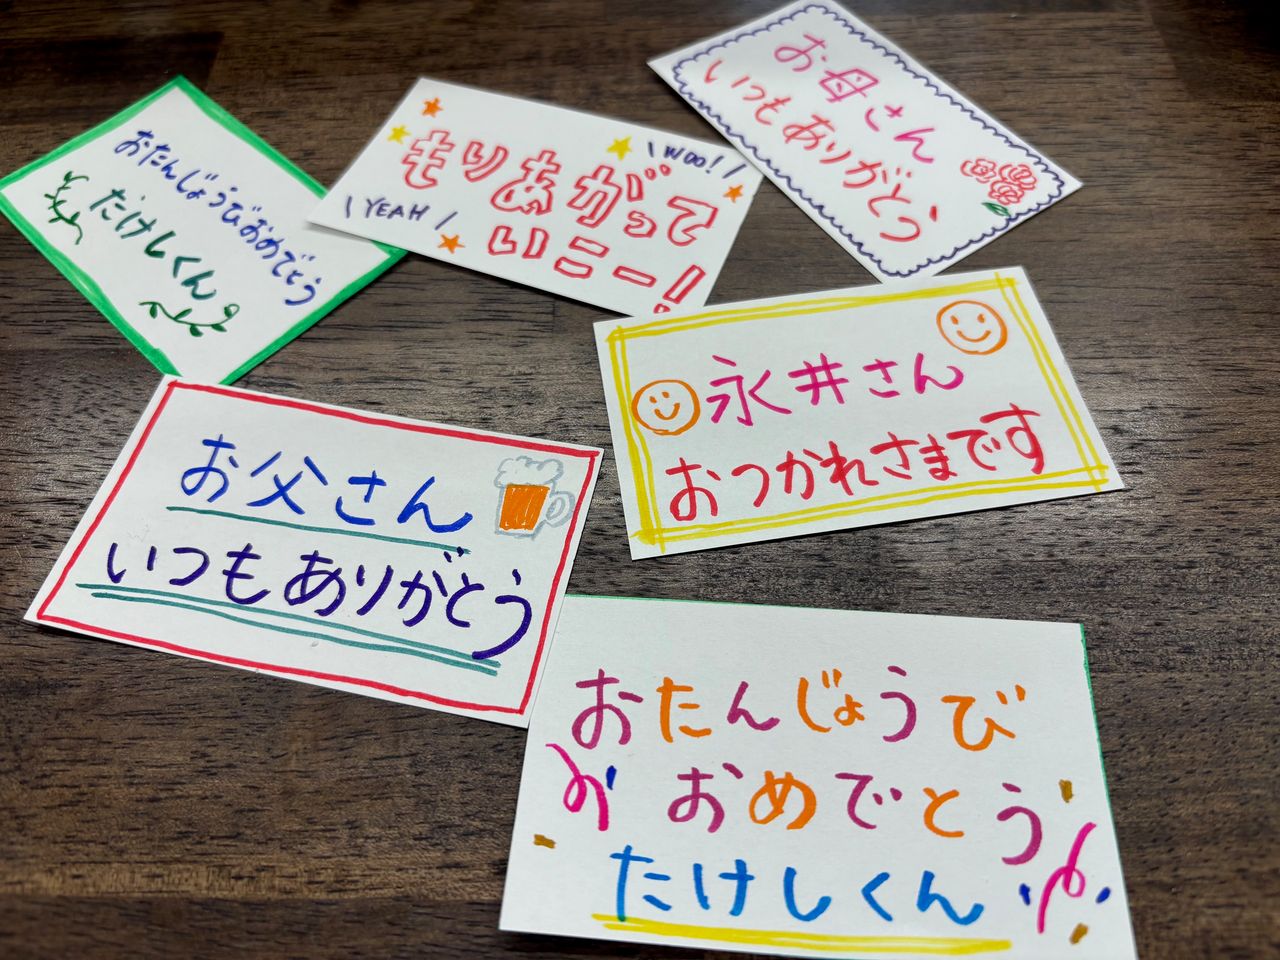 お母さん
いつもありがとう
\ WOO! /
もりあがって
いこー!
\ YEAH /
おたんじょうびおめでとう
たけしくん
永井さん
おつかれさまです
お父さん
いつもありがとう
おたんじょうび
おめでとう
たけしくん